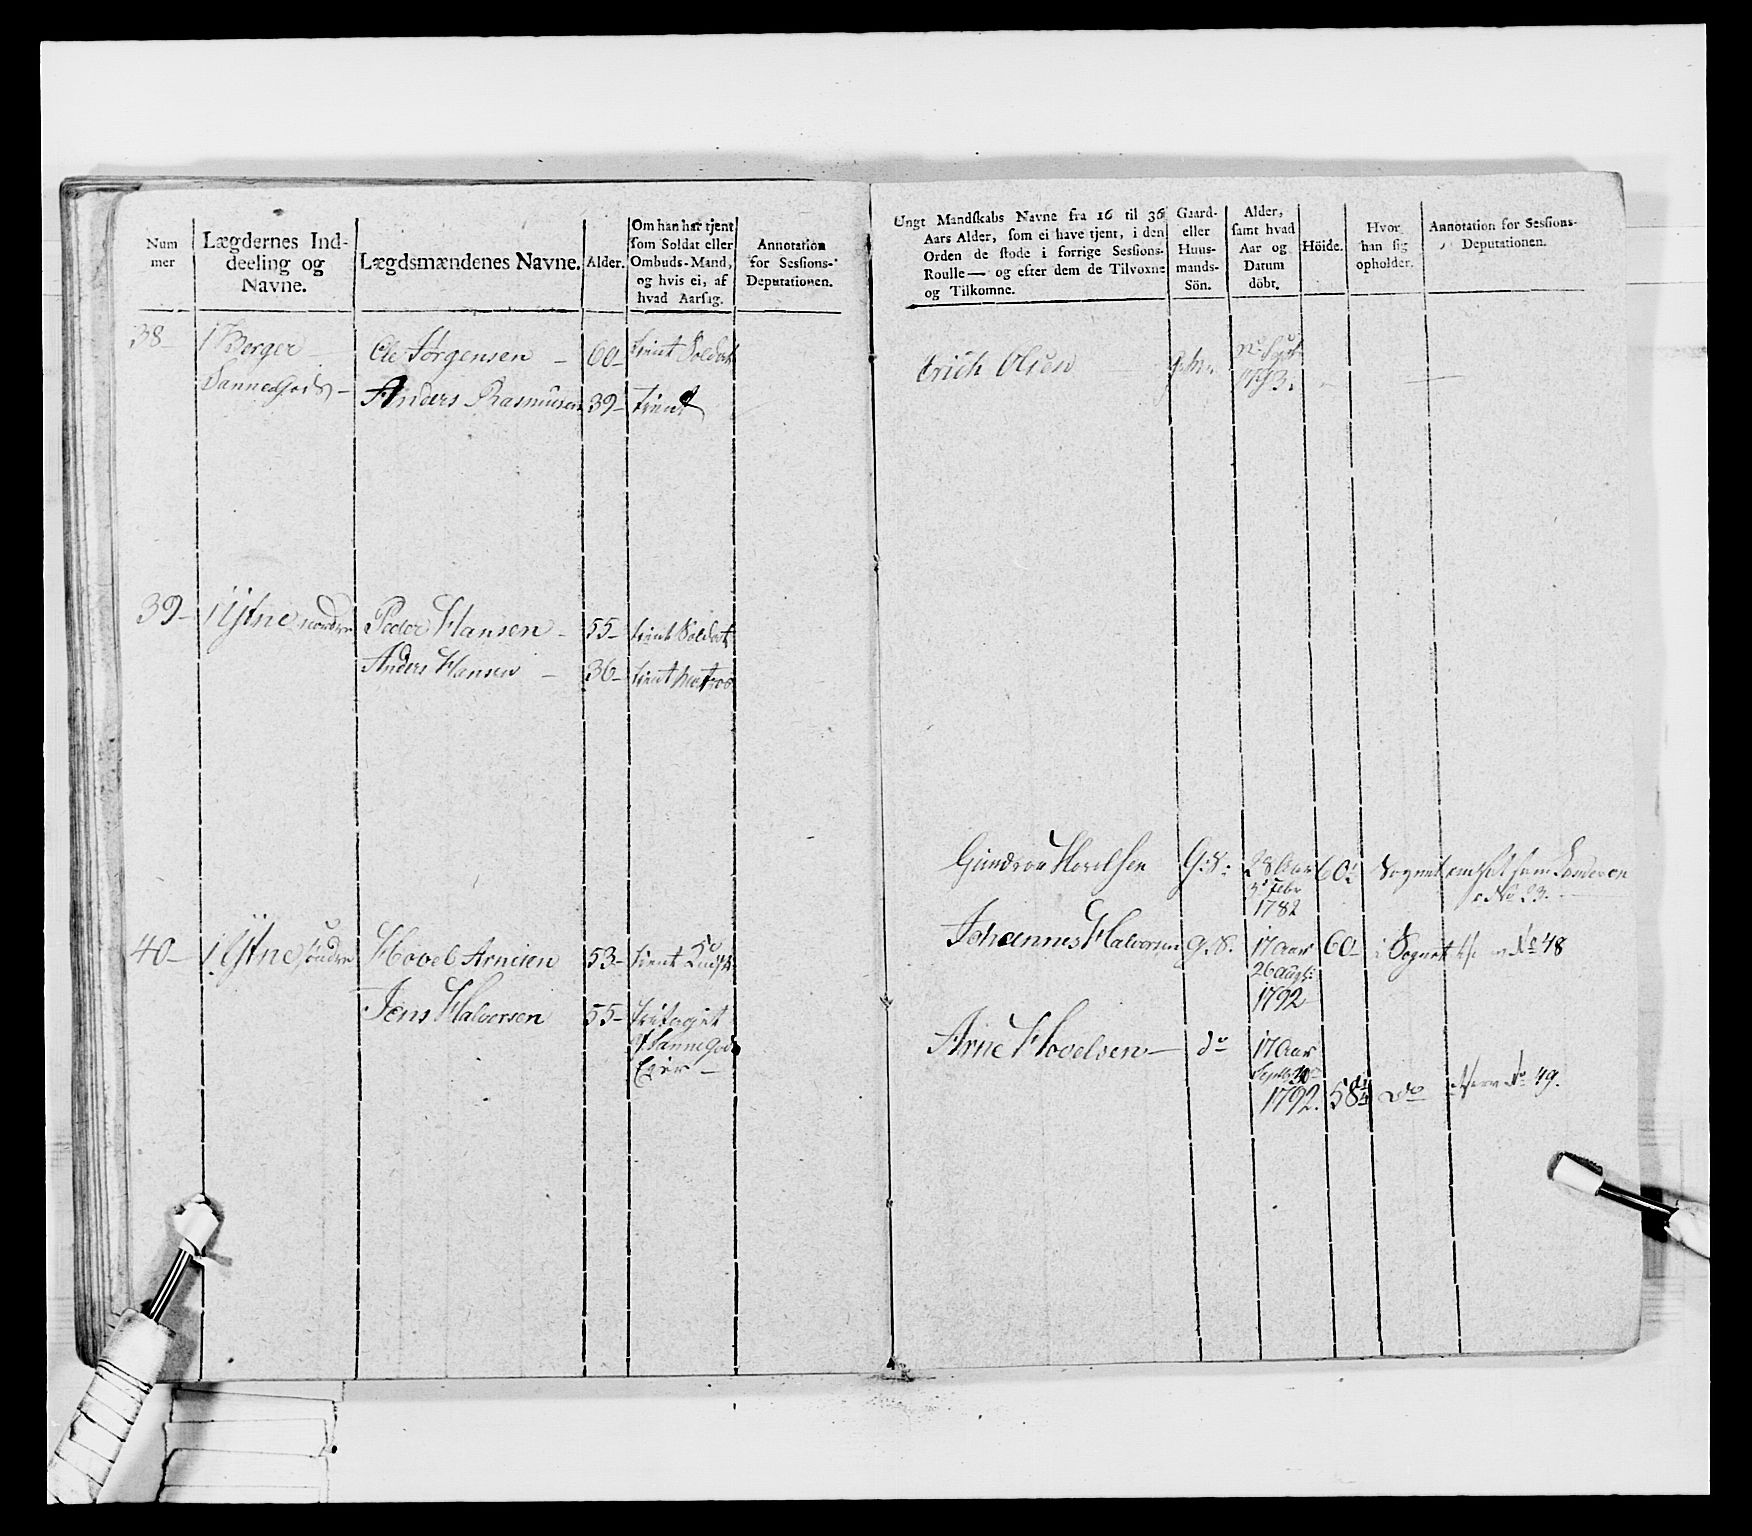 Num
mer
Lægdernes Ind-
deeling og
Navne.
Lægdsmændenes Navne.
Alder.
Om han har tjent
som Soldat eller
Ombuds-Mand,
og hvis ei, af
hvad Aarsag.
Annotation
for Sessions-
Deputationen.
38 1 Berger Ole Jørgensen 60 tient Soldat
Anders Rasmusen 39 tient
39 1 Ystne nordre Peder Hansen 55 tient Soldat
Anders Hansen 36 tient Matros
40 1 Ystne søndre Hovel Arnesen 53 tient
Jens Halvorsen 55
Ungt Mandskabs Navne fra 16 til 36
Aars Alder, som ei have tjent, i den
Orden de stode i forrige Sessions-
Roulle— og efter dem de Tilvoxne
og Tilkomne.
Gaard-
eller
Huus-
mands-
Sön.
Alder,
samt hvad
Aar og
Datum
döbt.
Höide.
Hvor
han sig
opholder.
Annotation for Sessions-
Deputationen.
Erich Olsen
1793.
Gundvor Hovelsen G: S: 28 Aar 60
Febr
1782
No 23.
Johannes Halvorsen G. S. 17 Aar 60 i Sognet No 48
26 Augt:
1792
Arne Hovelsen do 17 Aar
Septb
1792. 58 do No 49.